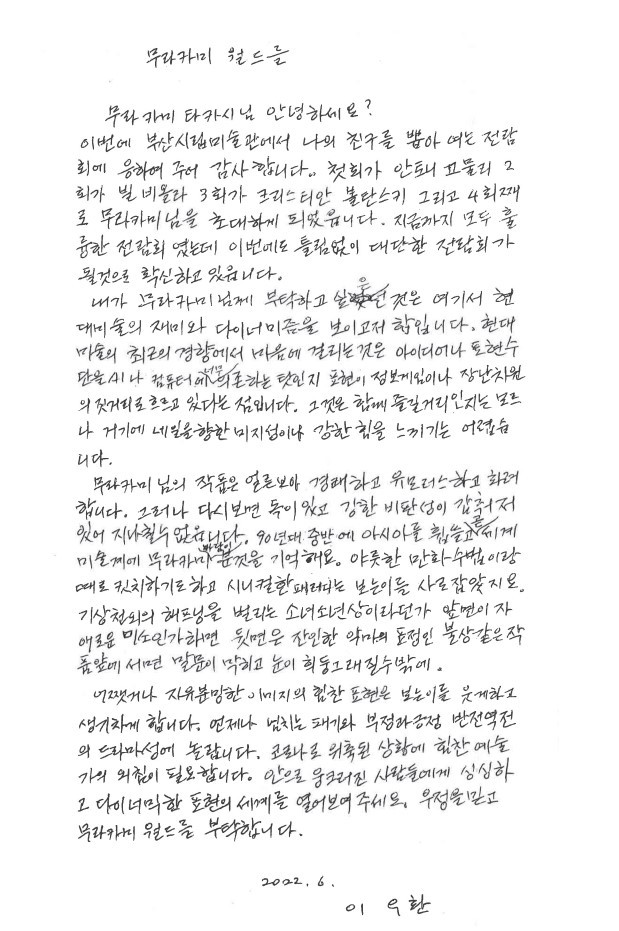 무라카미 월드를
무라카미 타카시님 안녕하세요?
이번에 부산시립미술관에서 나의 친구를 뽑아 여는 전람
회에 응하여 주어 감사합니다. 첫회가 안토니 고믈리 2
회가 빌 비올라 3회가 크리스티안 볼탄스키 그리고 4회째
로 무라카미님을 초대하게 되었읍니다. 지금까지 모두 훌
륭한 전람회였는데 이번에도 틀림없이 대단한 전람회가
될것으로 확신하고 있읍니다.
내가 무라카미님께 부탁하고 싶은 것은 여기서 현
대미술의 재미와 다이너미즘을 보이고저 함입니다. 현대
미술의 최근의 경향에서 마음에 걸리는것은 아이디어나 표현수
단을 AI나 컴퓨터에 너무 의존하는 탓인지 표현이 정보게임이나 장난차원
의 짓거리로 흐르고 있다는 점입니다. 그것은 함께 즐길거리인지는 모르
나 거기에 내일을향한 미지성이나 강한 힘을 느끼기는 어렵습
니다.
무라카미님의 작품은 얼른보아 경쾌하고 유모러스하고 화려
합니다. 그러나 다시보면 독이있고 강한 비판성이 감춰저
있어 지나칠수 없읍니다. 90년대 중반에 아시아를 휩쓸고 세계
미술계에 무라카미 바람이 분것을 기억해요. 야릇한 만화수법이랑
때로 킷치하기도하고 시니컬한 패러디는 보는이들 사로잡았지요.
기상천외의 해프닝을 벌리는 소녀소년상이라던가 앞면이 자
애로운 미소인가하면 뒷면은 잔인한 악마의 표정인 불상같은작
품앞에 세면 말문이 막히고 눈이 휘둥그래질수밖에.
어쨌거나 자유분망한 이미지의 힘찬 표현은 보는이를 웃게하고
생기차게 합니다. 언제나 넘치는 패기와 부정과긍정 반전역전
의 드라마성에 놀랍니다. 코로나로 위축된 상황에 힘찬 예술
가의 외침이 필요합니다. 안으로 웅크러진 사람들에게 싱싱하
고 다이너믹한 표현의 세계를 열어보여 주세요. 우정을 믿고
무라카미 월드를 부탁합니다.
2022. 6.
이 우 환